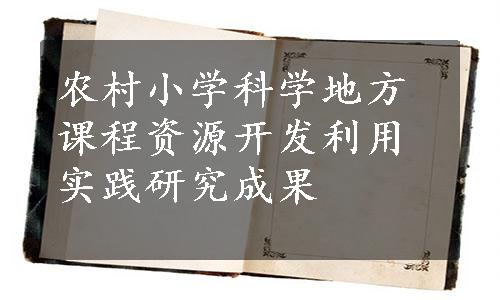 农村小学科学地方
课程资源开发利用
实践研究成果